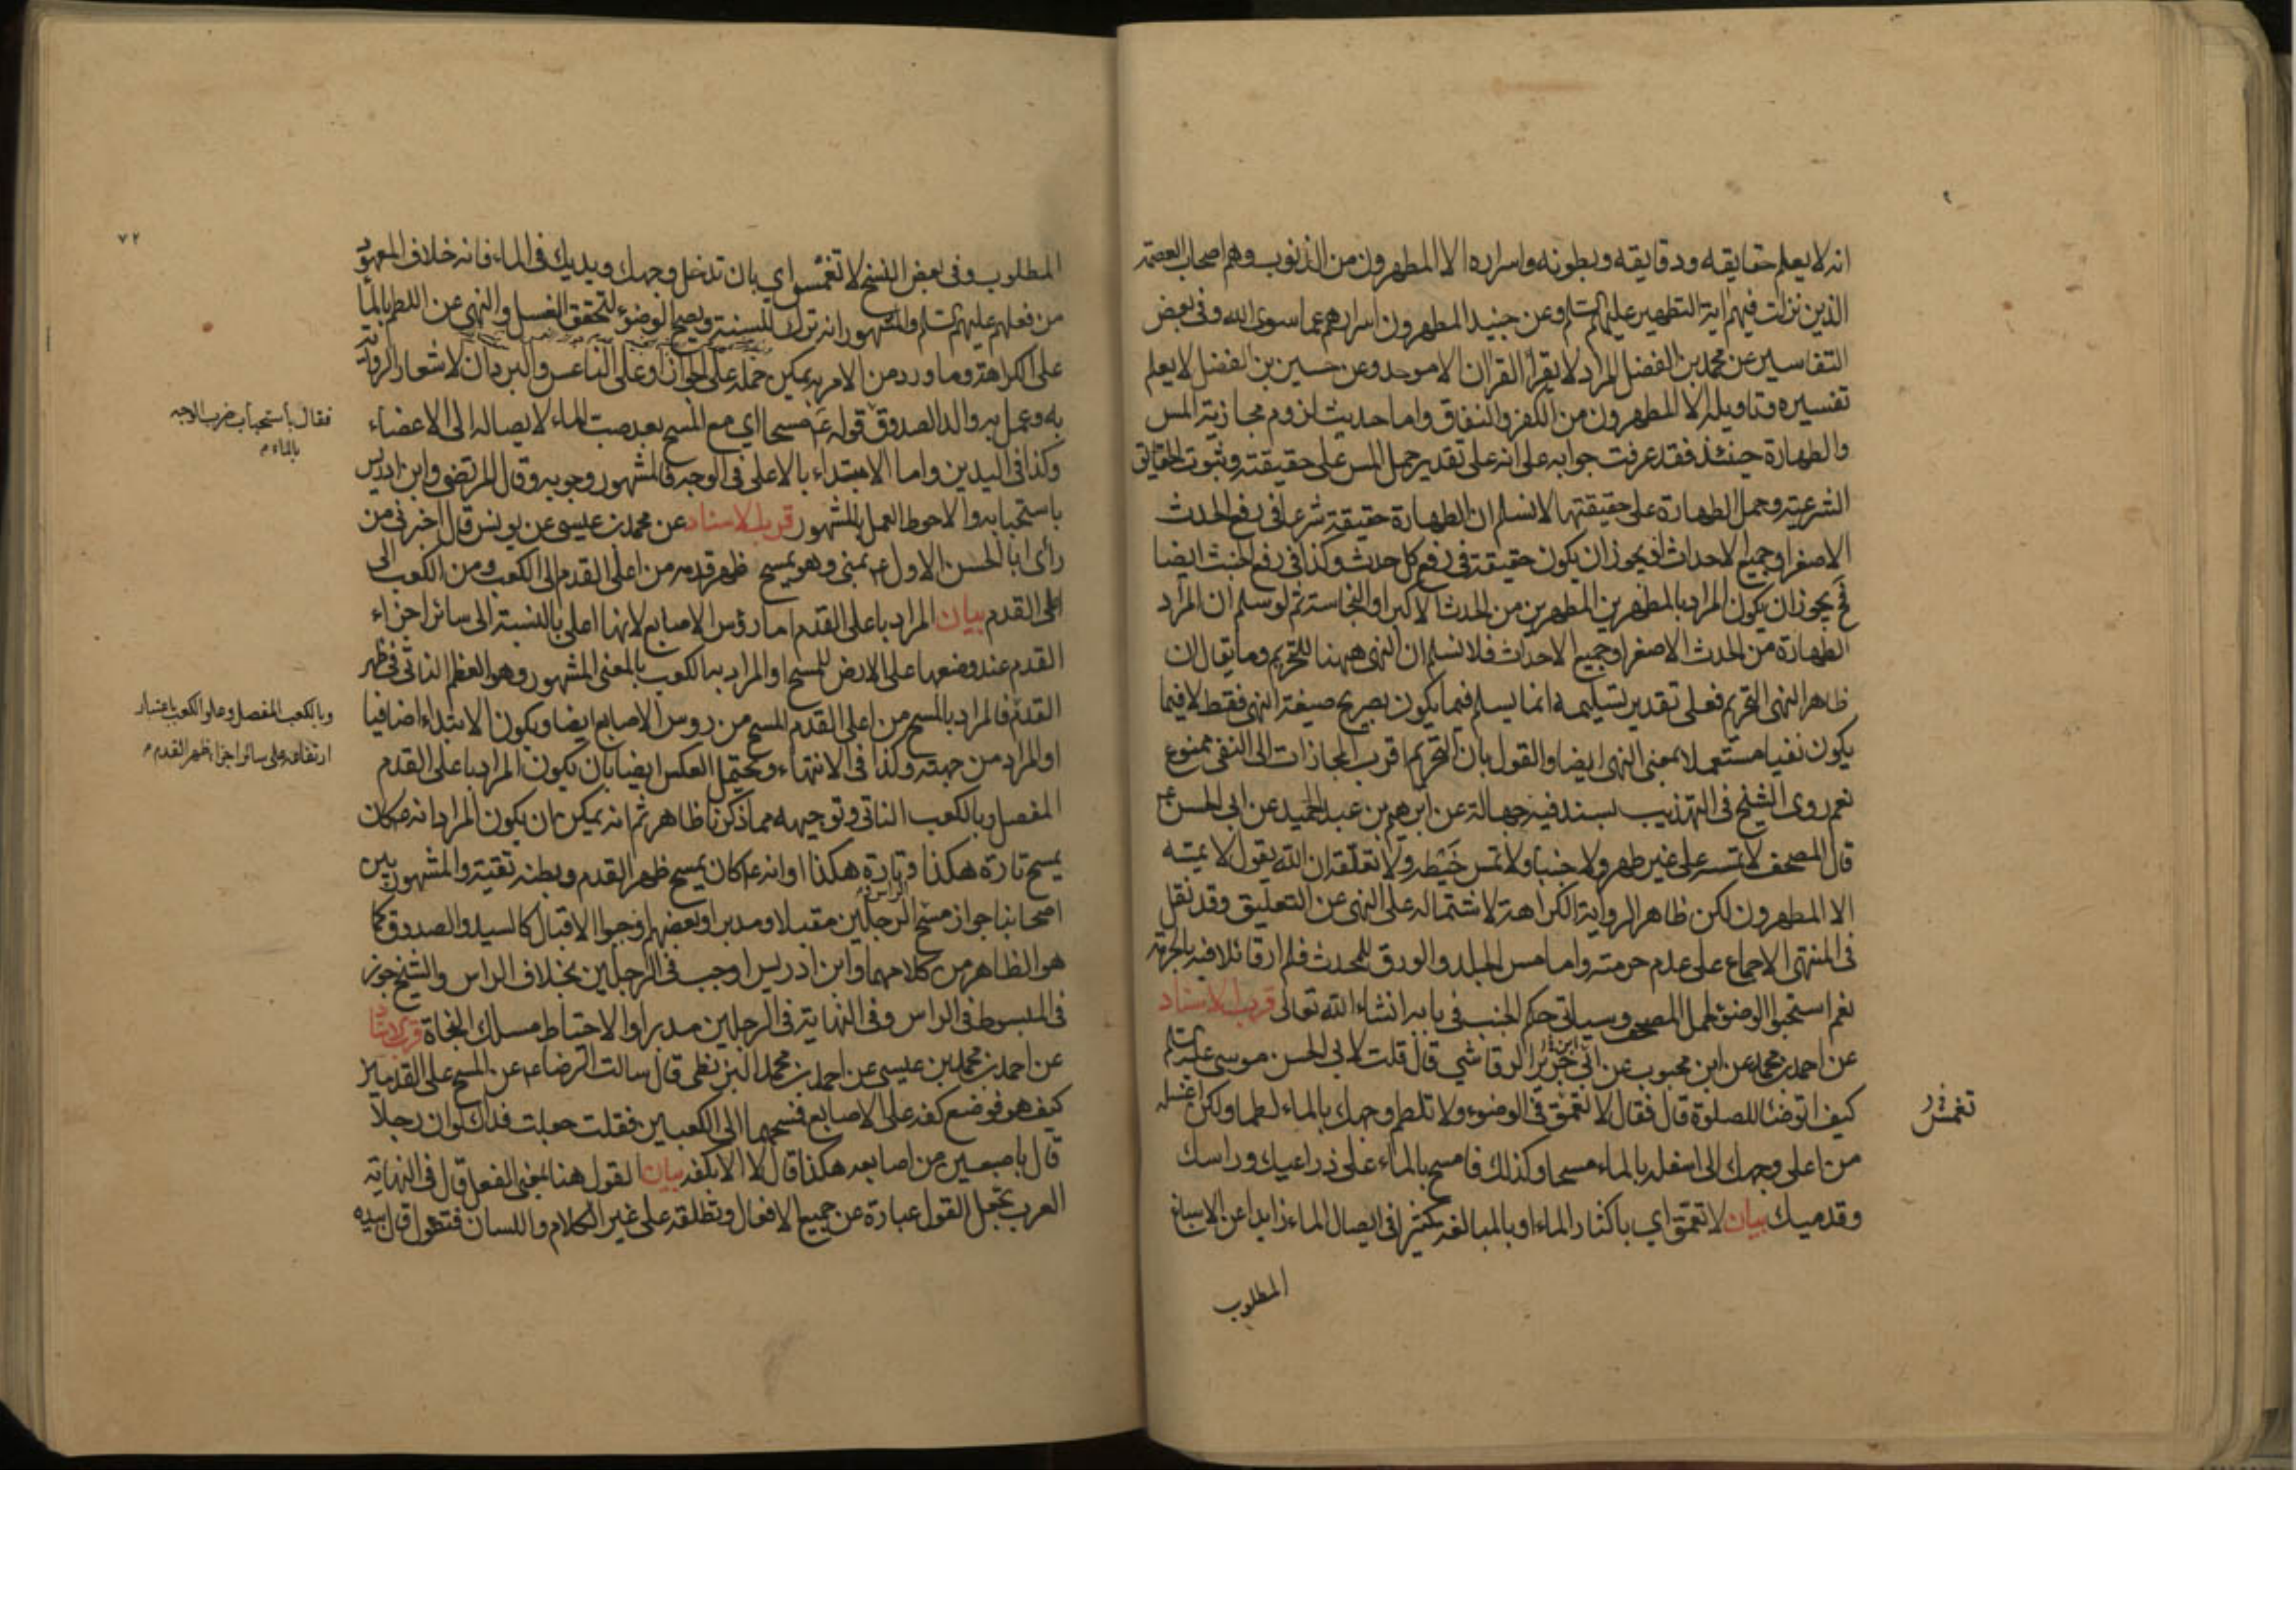 انه لا يعلم حقايقه ودقايقه وبطونه واسراره الا المطهرون من الذنوب وهم اصحاب العصمة
الذين نزلت فيهم اية التطهير عليهم السلام وعن جنيد المطهرون اسرارهم عما سوى الله وفى بعض
التفاسير عن محمد بن الفضل المراد لا يقرأ القران الا موحد وعن حسين بن الفضل لا يعلم
تفسيره وتاويله الا المطهرون من الكفر والنفاق واما حديث لزوم مجازية المس
والطهارة حينئذ فقد عرفت جوابه على انه على تقدير حمل المس على حقيقته وثبوت الحقايق
الشرعية وحمل الطهارة على حقيقتها لا نسلم ان الطهارة حقيقة شرعا فى رفع الحدث
الاصغر او جميع الاحداث اذ يجوز ان يكون حقيقة فى رفع كل حدث وكذا فى رفع الخبث ايضا
فح يجوز ان يكون المراد بالمطهرين المطهرين من الحدث الاكبر او النجاسة ثم لو سلم ان المراد
الطهارة من الحدث الاصغر او جميع الاحداث فلا نسلم ان النهى ههنا للتحريم وما يقال ان
ظاهر النهى التحريم فعلى تقدير تسليمه انما يسلم فيما يكون بصريح صيغة النهى فقط لا فيما
يكون نفيا مستعملا بمعنى النهى ايضا والقول بان التحريم اقرب المجازات الى النفى ممنوع
نعم روى الشيخ فى التهذيب بسند فيه جهالة عن ابرهيم بن عبد الحميد عن ابى الحسن ع
قال المصحف لا تمسه على غير طهر ولا جنبا ولا تمس خيطه ولا تعلقه ان الله يقول لا يمسه
الا المطهرون لكن ظاهر الرواية الكراهة لاشتماله على النهى عن التعليق وقد نقل
فى المنتهى الاجماع على عدم حرمته واما مس الجلد والورق للمحدث فلم ار قائلا فيه بالحرمة
نعم استحبوا الوضوء لحمل المصحف وسياتى حكم الجنب فى بابه انشاء الله تعالى قرب الاسناد
عن احمد بن محمد عن ابن محبوب عن ابى جرير الرقاشي قال قلت لابى الحسن موسى عليه السلم
كيف اتوضا للصلوة قال فقال لا تعمق فى الوضوء ولا تلطم وجهك بالماء لطما ولكن اغسله
من اعلى وجهك الى اسفله بالماء مسحا وكذلك فامسح بالماء على ذراعيك وراسك
وقدميك بيان لا تعمق اي باكثار الماء او بالمبالغة كثيرا فى ايصال الماء زايدا عن الاسباغ
المطلوب
تغمس
٧٢
المطلوب وفى بعض النسخ لا تغمس اي بان تدخل وجهك ويديك فى الماء فانه خلاف المعهود
من فعلهم عليهم السلم والمشهور انه ترك للسنة ويصح الوضوء لتحقق الغسل والنهى عن اللطم بالماء
على الكراهة وما ورد من الامر به يمكن حمله على الجواز او على الناعس والبردان لاشعار الرواية
به وعمل به والد الصدوق قوله ع مسحا اي مع المسح بعد صب الماء لايصاله الى الاعضاء
فقال باستحباب ضرب الوجه
بالماء م
وكذا فى اليدين واما الابتداء بالاعلى فى الوجه فالمشهور وجوبه وقال المرتضى وابن ادريس
باستحبابه والاحوط العمل بالمشهور قرب الاسناد عن محمد بن عيسى عن يونس قال اخبرنى من
رأى ابا الحسن الاول ع بمنى وهو يمسح ظهر قدمه من اعلى القدم الى الكعب ومن الكعب الى
اعلى القدم بيان المراد باعلى القدم اما رؤس الاصابع لانها اعلى بالنسبة الى سائر اجزاء
القدم عند وضعها على الارض للمسح او المراد به الكعب بالمعنى المشهور وهو العظم الناتى فى ظهر
القدم فالمراد بالمسح من اعلى القدم المسح من روس الاصابع ايضا ويكون الابتداء اضافيا
وبالكعب المفصل وعلو الكعب باعتبار
ارتفاعه على سائر اجزاء ظهر القدم م
او المراد من جهته وكذا فى الانتهاء ويحتمل العكس ايضا بان يكون المراد باعلى القدم
المفصل وبالكعب الناتى وتوجيهه مما ذكرنا ظاهر ثم انه يمكن ان يكون المراد انه ع كان
يمسح تارة هكذا وتارة هكذا او انه ع كان يمسح ظهر القدم وبطنه تقية والمشهور بين
اصحابنا جواز مسح الرجلين مقبلا ومدبرا وبعضهم اوجبوا الاقبال كالسيد والصدوق كما
هو الظاهر من كلامهما وابن ادريس اوجب فى الرجلين بخلاف الراس والشيخ جوز
فى المبسوط فى الراس وفى النهاية فى الرجلين مدبرا والاحتياط مسلك النجاة قرب الاسناد
عن احمد بن محمد بن عيسى عن احمد بن محمد البزنطى قال سالت الرضا ع عن المسح على القدمين
كيف هو فوضع كفه على الاصابع فمسحهما الى الكعبين فقلت جعلت فداك لو ان رجلا
قال باصبعين من اصابعه هكذا قال لا الا بكفه بيان القول هنا بمعنى الفعل قال فى النهاية
العرب تجعل القول عبارة عن جميع الافعال وتطلقه على غير الكلام واللسان فتقول قال بيده